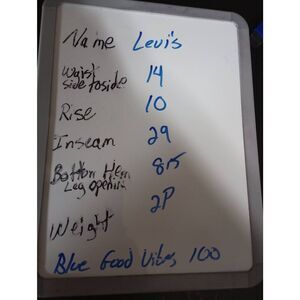 Name Levi's
Waist side to side 14
Rise 10
Inseam 29
Bottom Hem Leg opening 8.5
Weight 2P
Blue Good Vibes 100